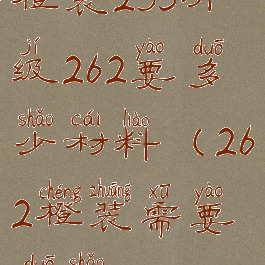 橙装255升
jí yào duō
级262要多
shǎo cái liào
少材料(26
chéng zhuāng xū yào
2橙装需要
duō shǎo